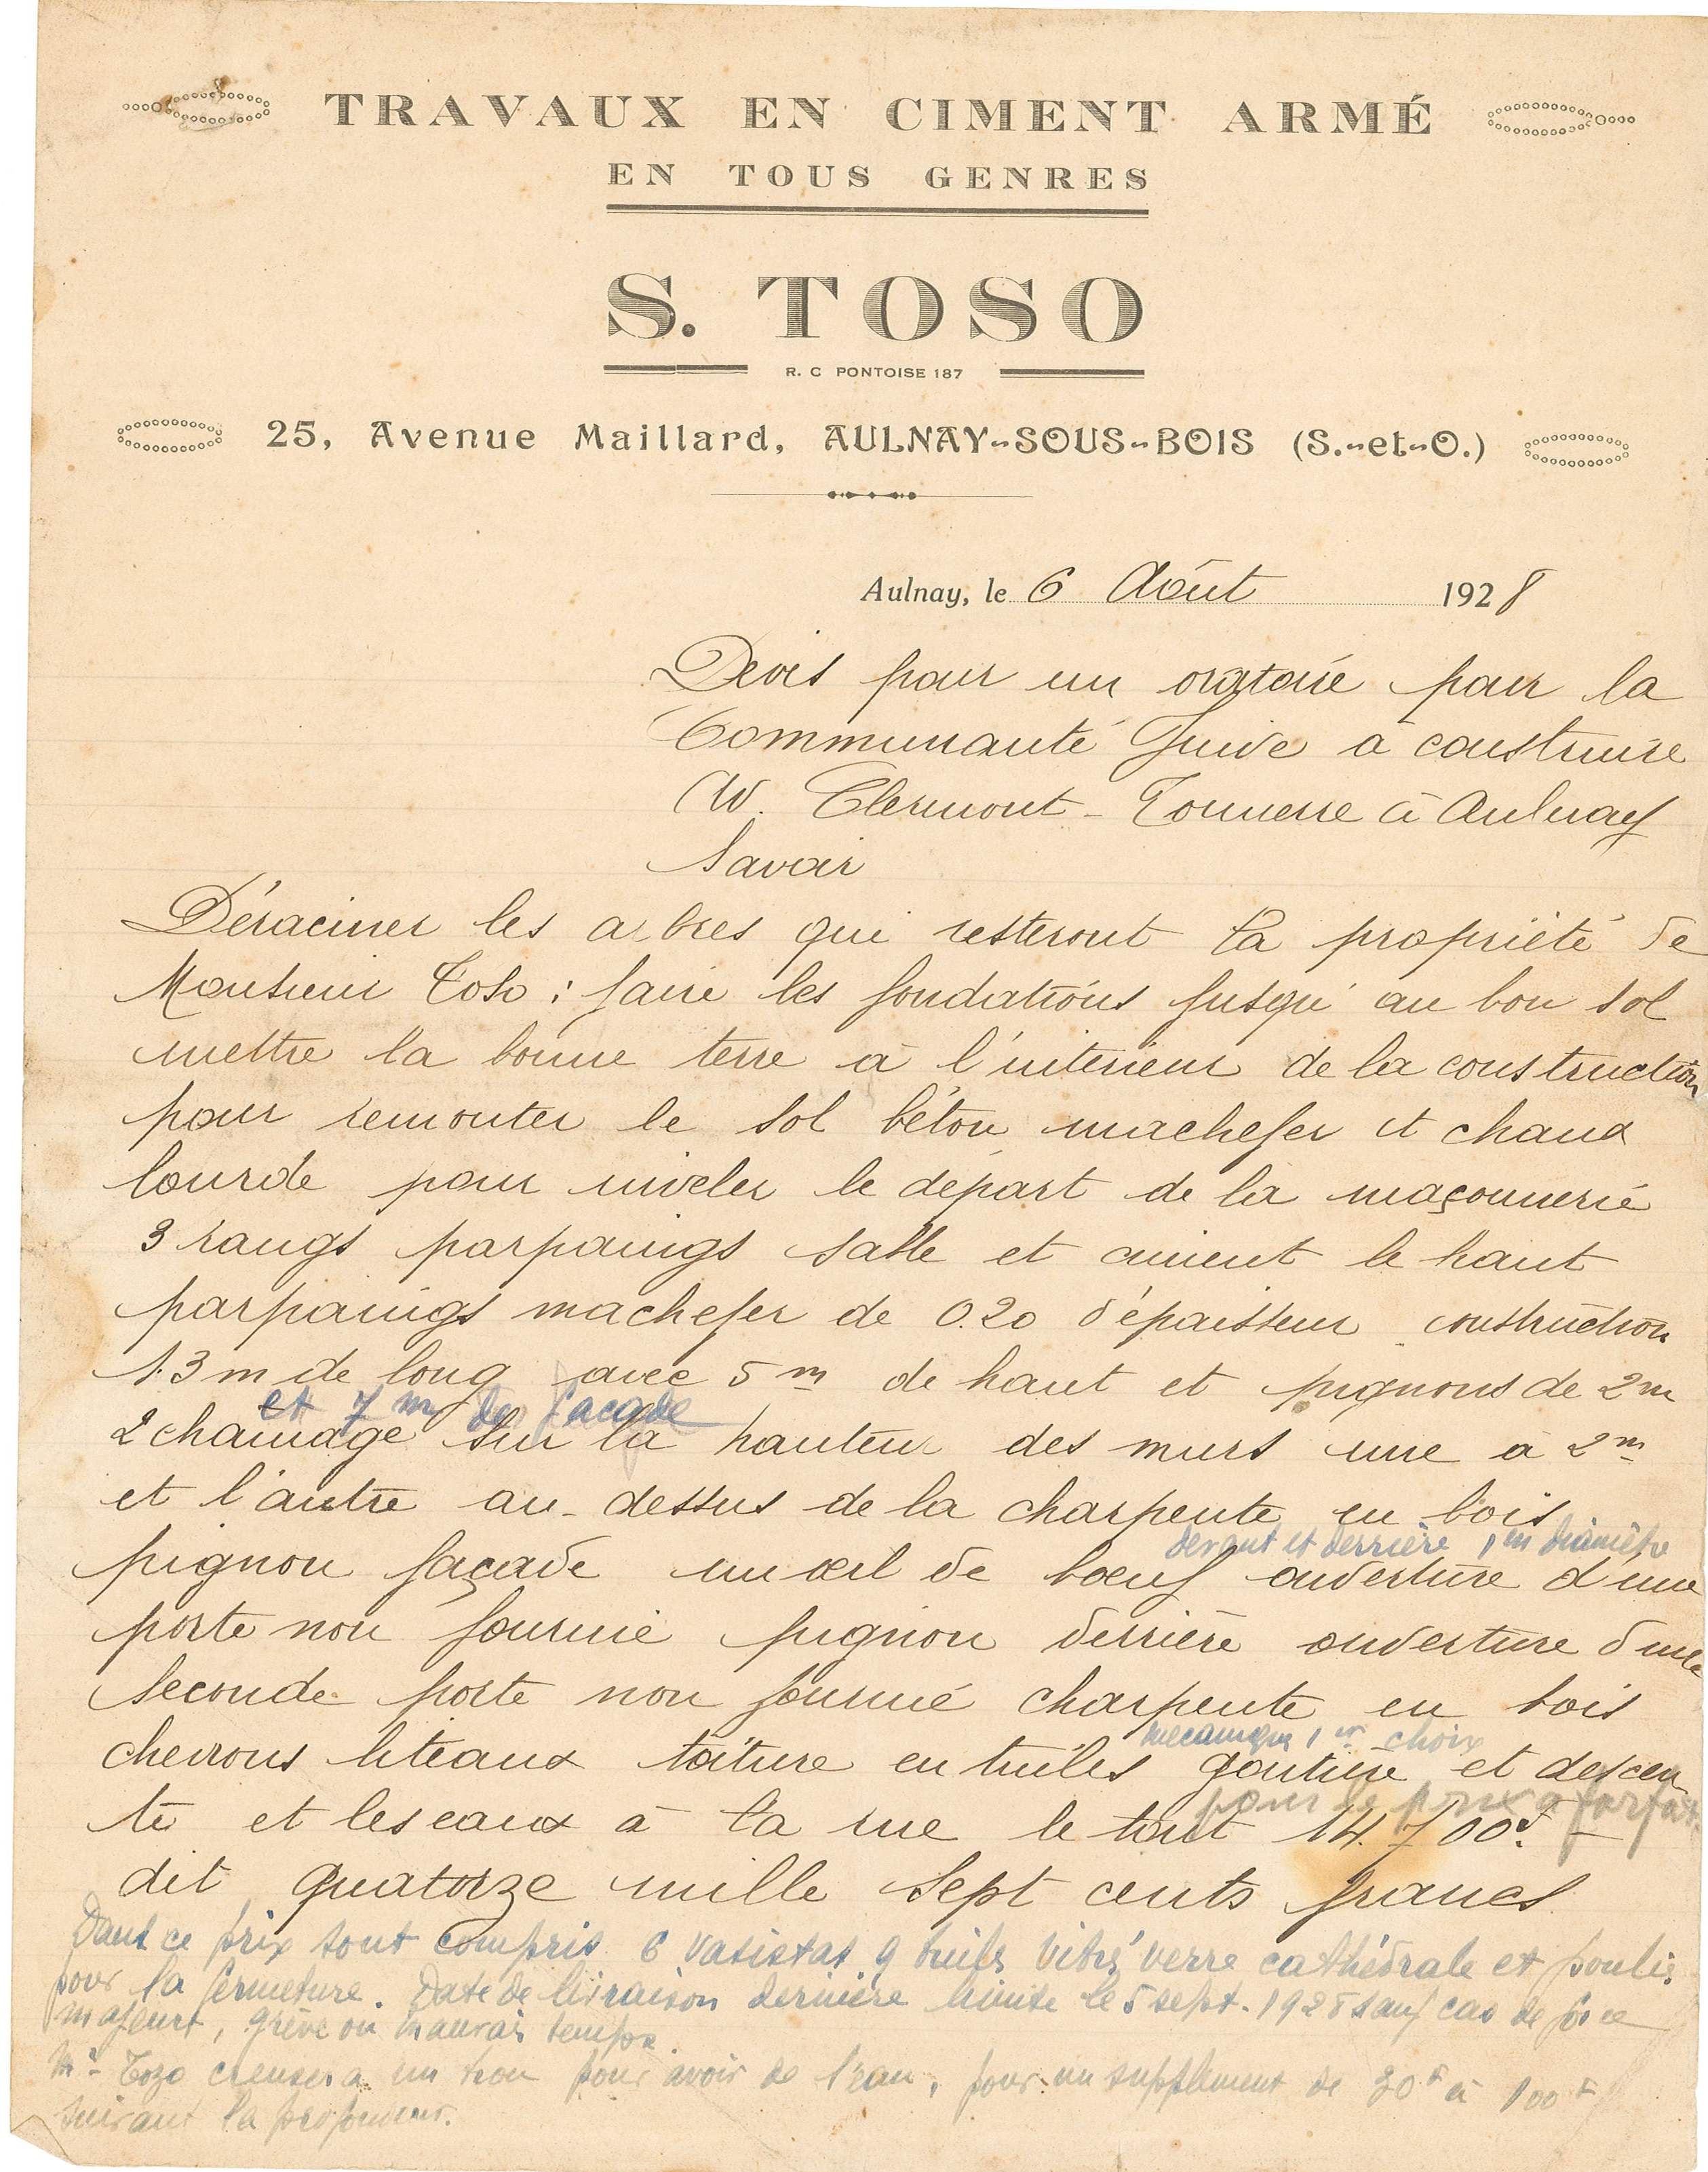 TRAVAUX EN CIMENT ARMÉ
EN TOUS GENRES
S. TOSO
R. C PONTOISE 187
25, Avenue Maillard, AULNAY-SOUS-BOIS (S.-et-O.)
Aulnay, le 6 Août 1928
Devis pour un oratoire pour la
Communauté Juive a construire
Av. Clermont-Tonnerre à Aulnay
Savoir
Déraciner les arbres qui resteront la propriété de
Monsieur Toso : faire les fondations jusqu' au bon sol
mettre la bonne terre à l'interieur de la construction
pour remonter le sol béton machefer et chaux
lourde pour niveler le départ de la maçonnerie
3 rangs parpaings sable et ciment le haut
parpaings machefer de 0.20 d'épaisseur construction
13 m de long avec 5 m de haut et pignons de 2m
et 7 m de façade
2 chainage sur la hauteur des murs une a 2m
et l'autre au-dessus de la charpente en bois
devant et derrière 1m diamètre
pignon façade un œil de bœuf ouverture d'une
porte non fournie pignon derrière ouverture d'une
seconde porte non fournie charpente en bois
mecanique 1er choix
chevrons liteaux toiture en tuiles goutière et descen
pour le prix à forfait
te et les eaux à la rue le tout 14.700f. -
dit quatorze mille sept cents francs
Dans ce prix sont compris 6 vasistas 9 tuiles verre cathédrale et poulie
pour la fermeture. Date de livraison dernière limite le 5 sept. 1928 sauf cas de force
majeurt, grève ou mauvais temps.
Mr Tozo creusera un trou pour avoir de l'eau, pour un supplément de 30f à 100f
suivant la profondeur.